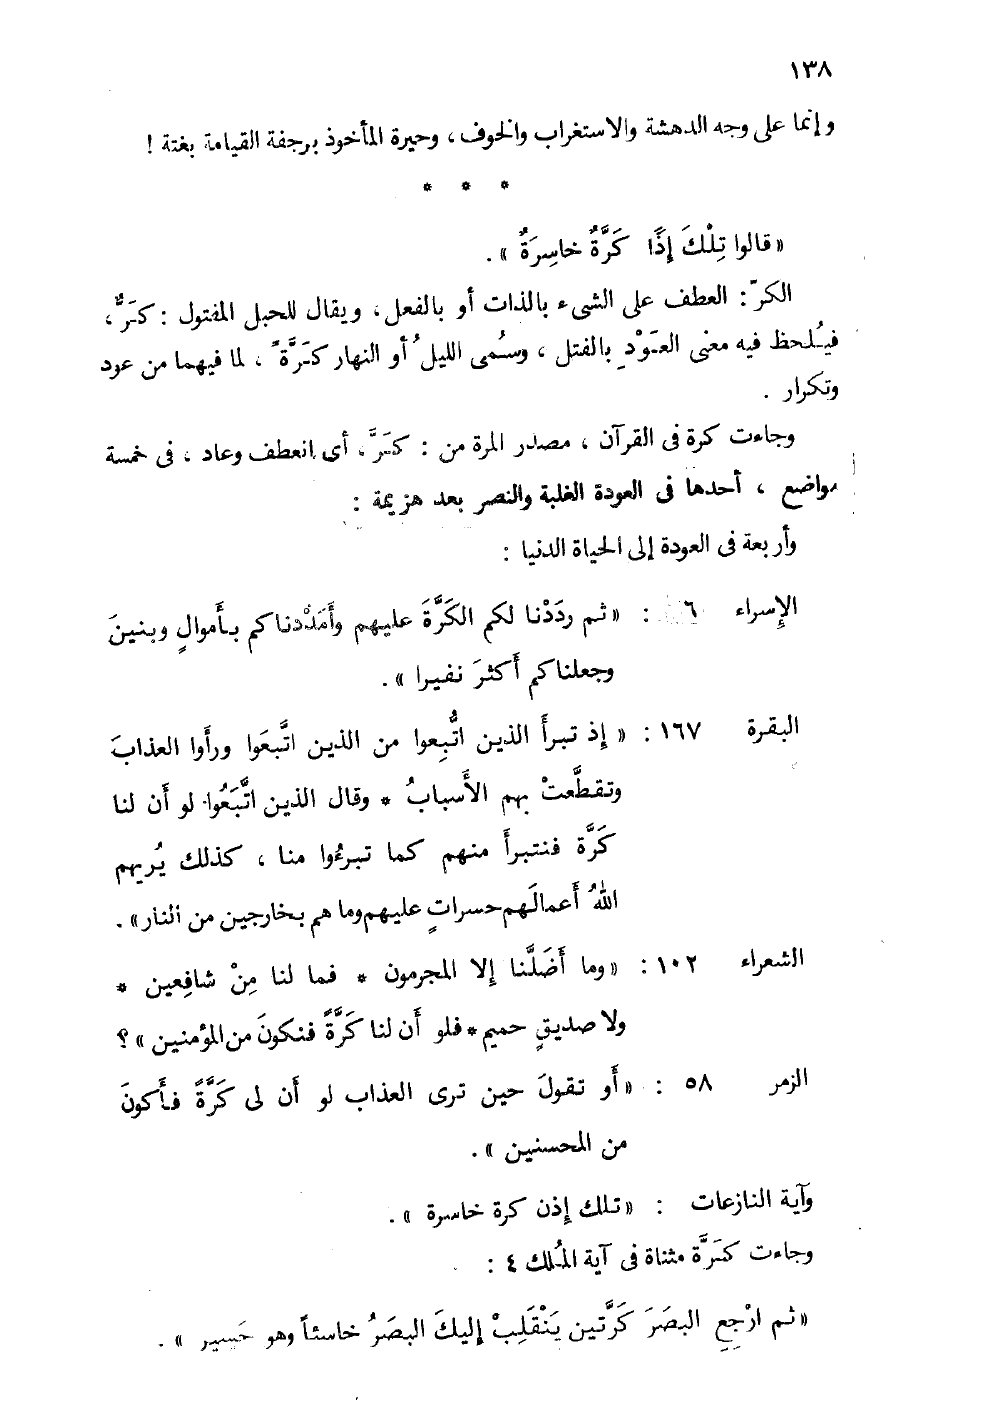 ١٣٨
وإنما على وجه الدهشة والاستغراب والخوف ، وحيرة المأخوذ برجفة القيامة بغتة !
* * *
« قالوا تِلْكَ إِذًا كَرَّةٌ خاسِرَةٌ » .
الكرّ : العطف على الشيء بالذات أو بالفعل ، ويقال للحبل المفتول : كَرٌّ ،
فيُلحظ فيه معنى العَوْدِ بالفتل ، وسُمى الليلُ أو النهار كَرَّةً ، لما فيهما من عود
وتكرار .
وجاءت كرة فى القرآن ، مصدر المرة من : كَرَّ ، أى انعطف وعاد ، فى خمسة
مواضع ، أحدها فى العودة الغلبة والنصر بعد هزيمة :
وأربعة فى العودة إلى الحياة الدنيا :
الإسراء ٦ : « ثم ردَدْنا لكم الكَرَّةَ عليهم وأَمَدْدناكم بأَموالٍ وبنينَ
وجعلناكم أَكثرَ نفيرا » .
البقرة ١٦٧ : « إِذ تبرأَ الذين اتُّبِعوا من الذين اتَّبعَوا ورأَوا العذابَ
وتقطَّعتْ بهم الأَسبابُ * وقال الذين اتَّبَعُوا لو أَن لنا
كَرَّة فنتبرأَ منهم كما تبرءُوا منا ، كذلك يُريهم
اللهُ أَعمالَهم حسراتٍ عليهم وما هم بخارجين من النار » .
الشعراء ١٠٢ : « وما أَضَلَّنا إلا المجرمون * فما لنا مِنْ شافِعين *
ولا صديقٍ حميم * فلو أَن لنا كَرَّةً فنكونَ من المؤمنين » ؟
الزمر ٥٨ : « أَو تقولَ حين ترى العذاب لو أَن لى كَرَّةً فأَكونَ
من المحسنين » .
وآية النازعات : « تلك إِذن كرة خاسرة » .
وجاءت كَرَّة مثناة فى آية المُلك ٤ :
« ثم ارْجِعِ البصَرَ كَرَّتين يَنْقَلِبْ إِليكَ البصَرُ خاسئاً وهو حَسير » .